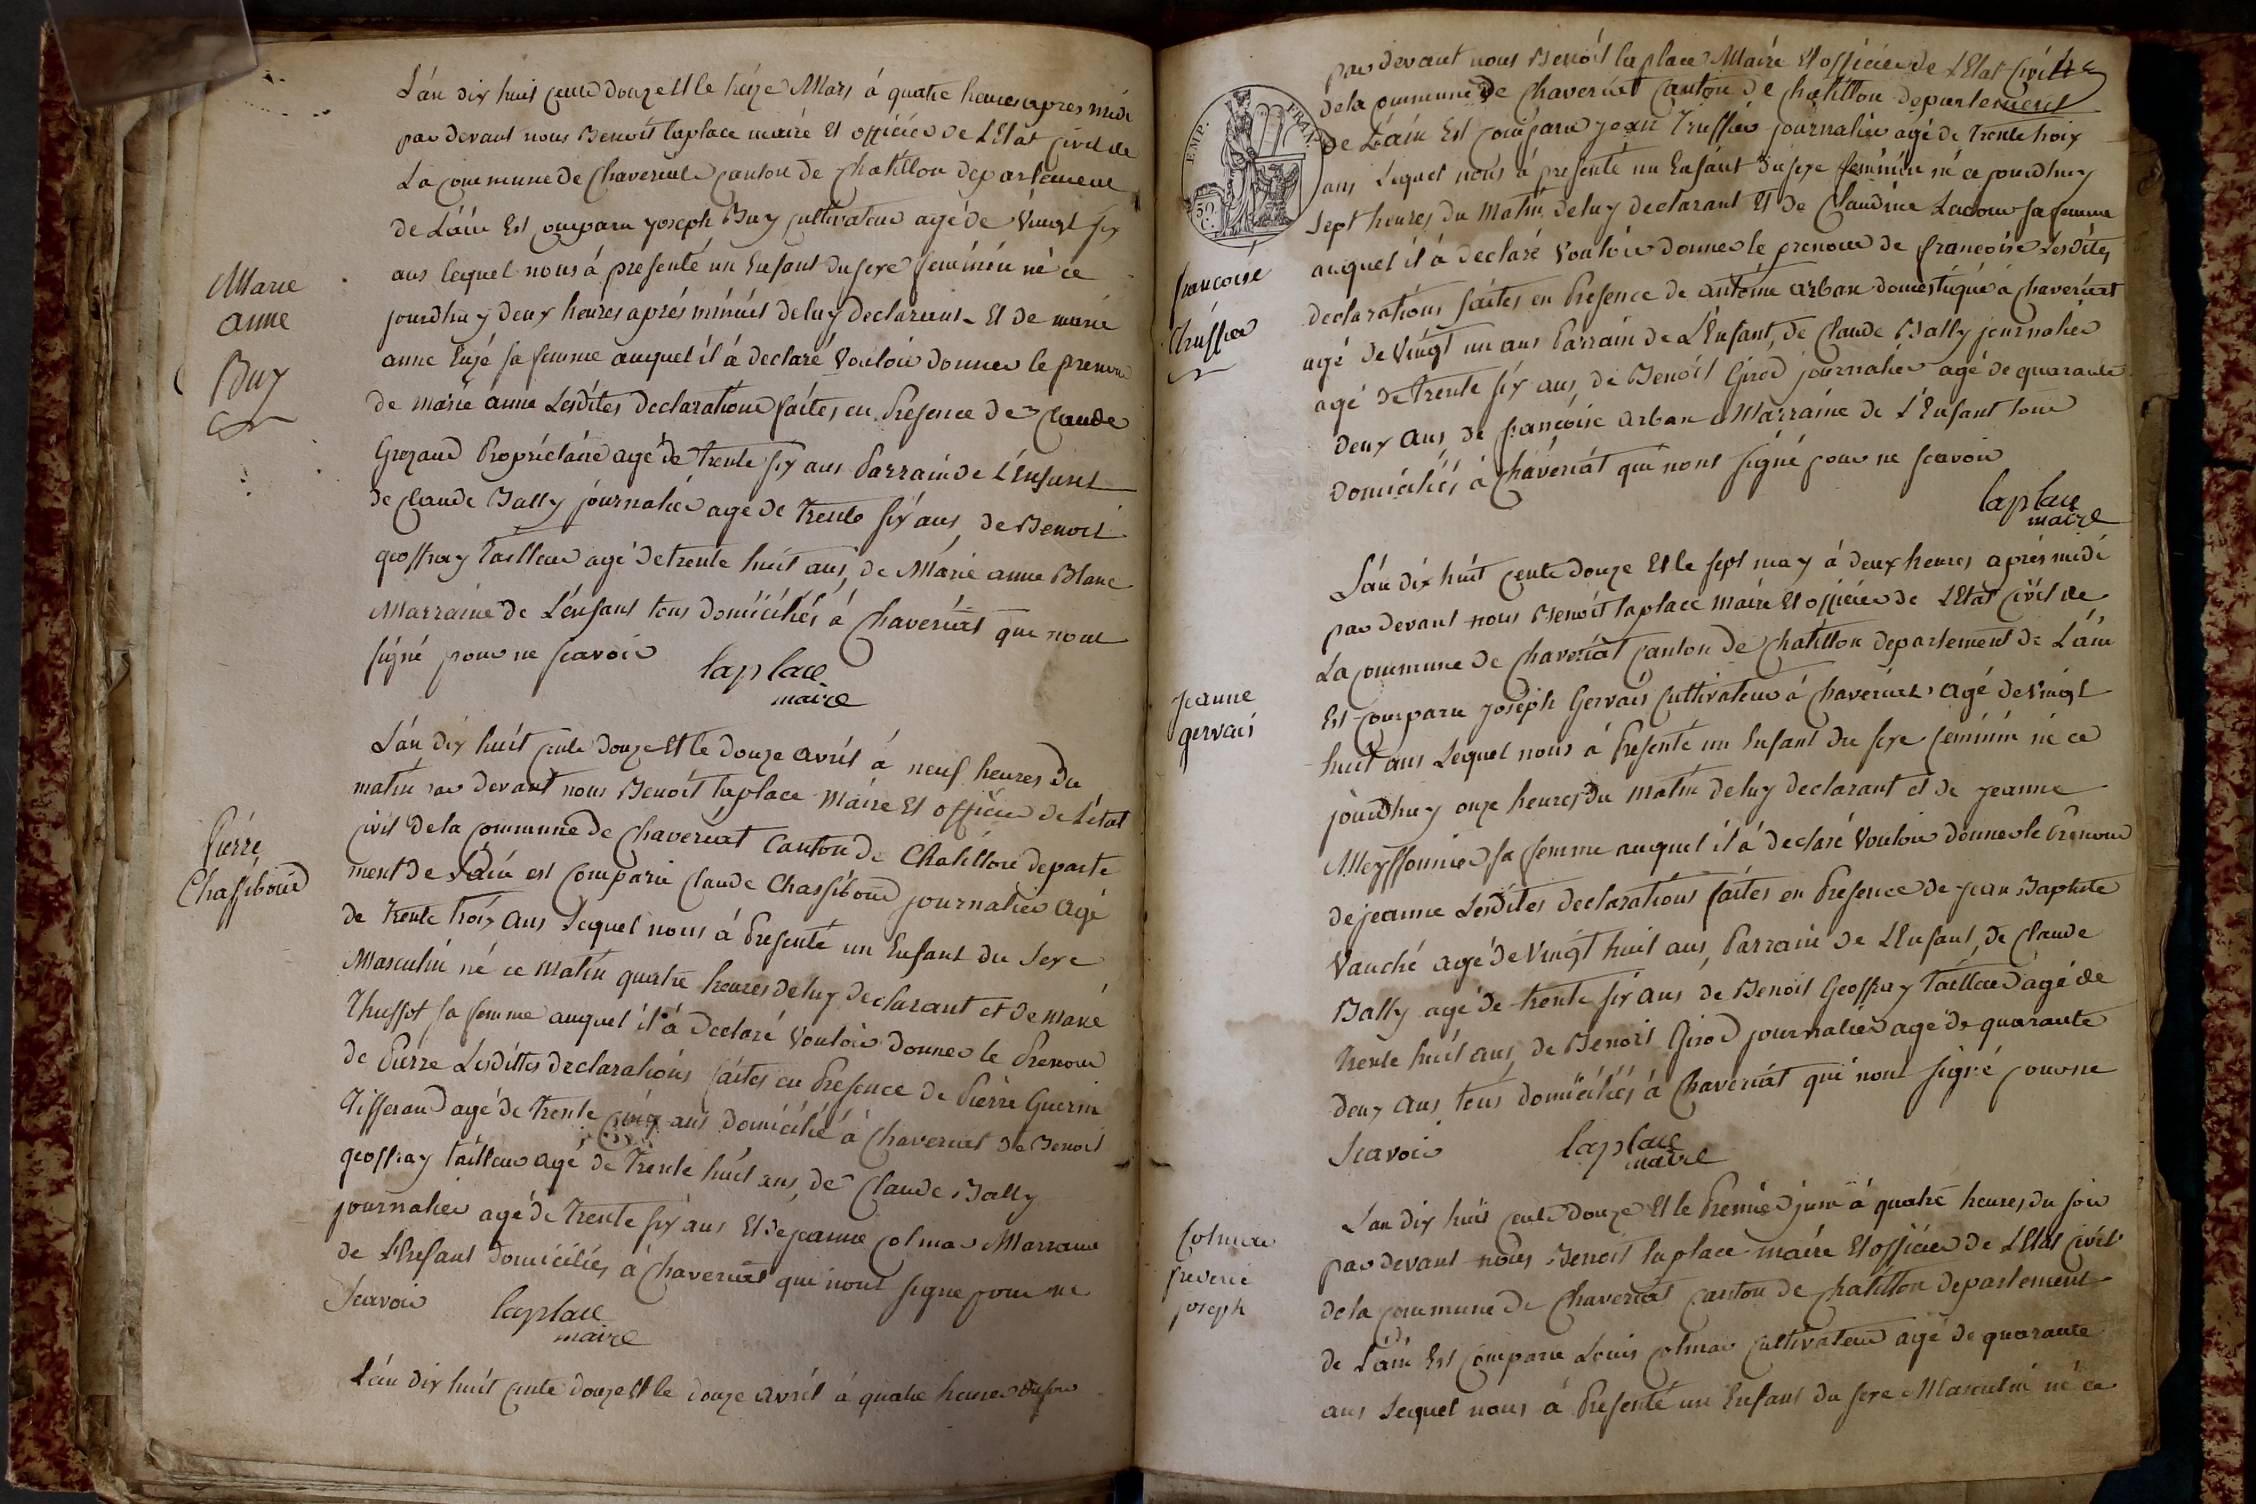 L'an dix huit cents douze Et le treize Mars à quatre heures après midi
par devant nous Benoit laplace maire Et officier de L'Etat Civil de
La commune de Chaveriat canton de Chatillon departement
de L'ain Est comparu joseph Buy cultivateur agé de vingt six
ans lequel nous à presenté un Enfant du sexe feminin né ce
jourdhuy deux heures après minuit de luy declarant Et de marie
anne sa femme auquel il à declaré vouloir donner le prenom
de marie anne Lesdites declarations faites en Presence de Claude
Propriétaire agé de trente six ans Parrain de L'Enfant
de Claude Bally journalier agé de trente six ans, de Benoit
geoffray tailleur agé de trente huit ans, de Marie anne Blanc
Marraine de L'enfant tous domiciliés à Chaveriat qui nont
signé pour ne scavoir
laplace
maire
Marie
anne
Buy
L'an dix huit cents douze Et le douze avril à neuf heures du
matin par devant nous Benoit laplace Maire Et officier de L'état
civil de la commune de Chaveriat Canton de Chatillon departe
ment de L'ain est comparu Claude Chassiboud journalier agé
de trente trois ans Lequel nous à Presenté un Enfant du Sexe
Masculin né ce matin quatre heures de luy declarant et de marie
Thussot sa femme auquel il à declaré vouloir donner le Prenom
de Pierre Lesdittes declarations faites en Presence de Pierre Guerin
Tifferand agé de trente cinq ans domicilié à Chaveriat de Benoit
geoffray tailleur agé de trente huit ans, de Claude Bally
journalier agé de trente six ans Et de jeanne colmar Marraine
de L'Enfant domiciliés à Chaveriat qui nont signé pour ne
Scavoir
laplace
maire
Pierre
Chassiboud
L'an dix huit cents douze Et le douze avril à quatre heures du soir
par devant nous Benoit laplace Maire Et officier de L'Etat Civil
de la commune de Chaveriat Canton de Chatillon departement
de L'ain Est comparu jean Truffier journalier agé de trente trois
ans Lequel nous à presenté un Enfant du sexe feminin né ce jourdhuy
sept heures du Matin de luy declarant Et de Claudine sa femme
auquel il à declaré Vouloir donner le prenom de francoise Lesdites
declarations faites en Presence de antoine arban domestique à Chaveriat
agé de vingt un ans Parrain de L'Enfant, de Claude Bally journalier
agé de trente six ans, de Benoit Girod journalier agé de quarante
deux ans, de francoise arban Marraine de L'Enfant tous
domiciliés à Chaveriat qui nont signé pour ne scavoir
laplace
maire
EMP. FRAN.
50 C.
francoise
Truffier
L'an dix huit cents douze Et le sept may à deux heures après midi
par devant nous Benoit laplace maire Et officier de L'Etat Civil de
La commune de Chaveriat canton de Chatillon departement de L'ain
Est comparu joseph Gervais Cultivateur à Chaveriat agé de vingt
huit ans Lequel nous à Presenté un Enfant du sexe feminin né ce
jourdhuy onze heures du matin de luy declarant et de jeanne
Meyssonnier sa femme auquel il à declaré vouloir donner le Prenom
de jeanne Lesdites declarations faites en Presence de jean Baptiste
Vauché agé de vingt huit ans, Parrain de L'Enfant, de Claude
Bally agé de trente six ans, de Benoit Geoffray tailleur agé de
trente huit ans, de Benoit Girod journalier agé de quarante
deux ans tous domiciliés à Chaveriat qui nont signé pour ne
Scavoir
laplace
maire
jeanne
gervais
L'an dix huit cents douze Et le Premier juin à quatre heures du soir
par devant nous Benoit laplace maire Et officier de L'Etat civil
de la commune de Chaveriat canton de Chatillon departement
de L'ain Est comparu Louis colmar cultivateur agé de quarante
ans Lequel nous à Presenté un Enfant du sexe Masculin né ce
Colmar
joseph